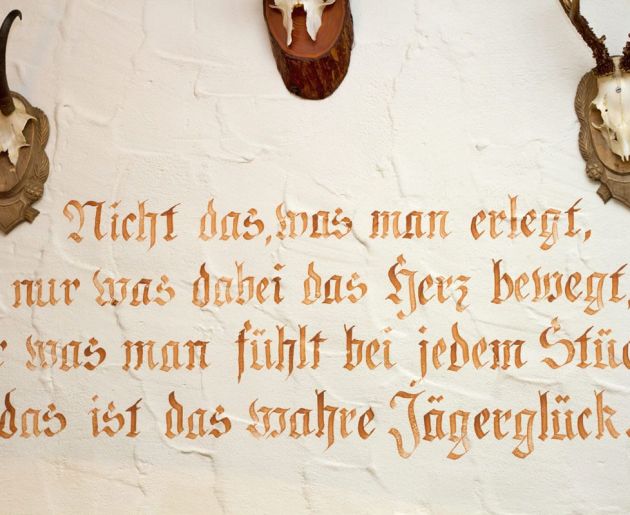 Nicht das, was man erlegt,
nur was dabei das Herz bewegt,
was man fühlt bei jedem
das ist das wahre Jägerglück.